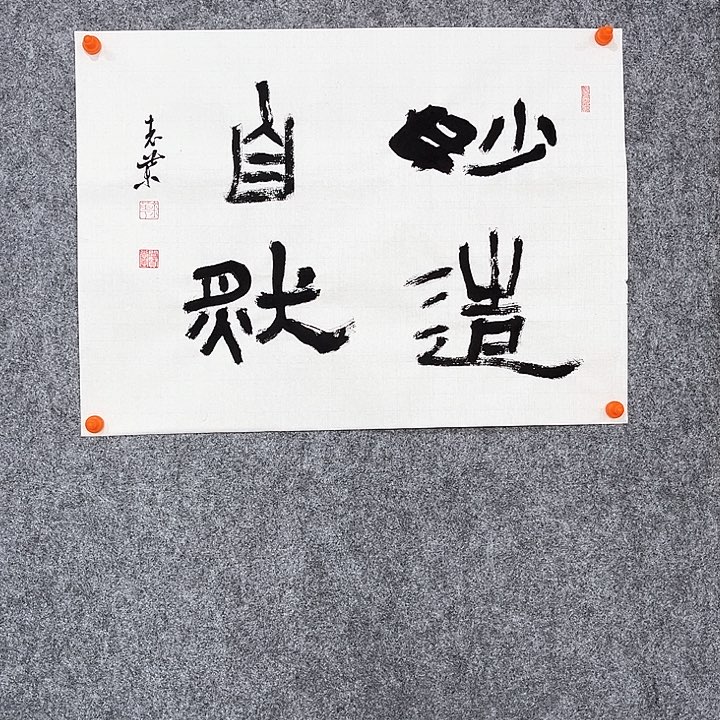 妙造
自然
志業